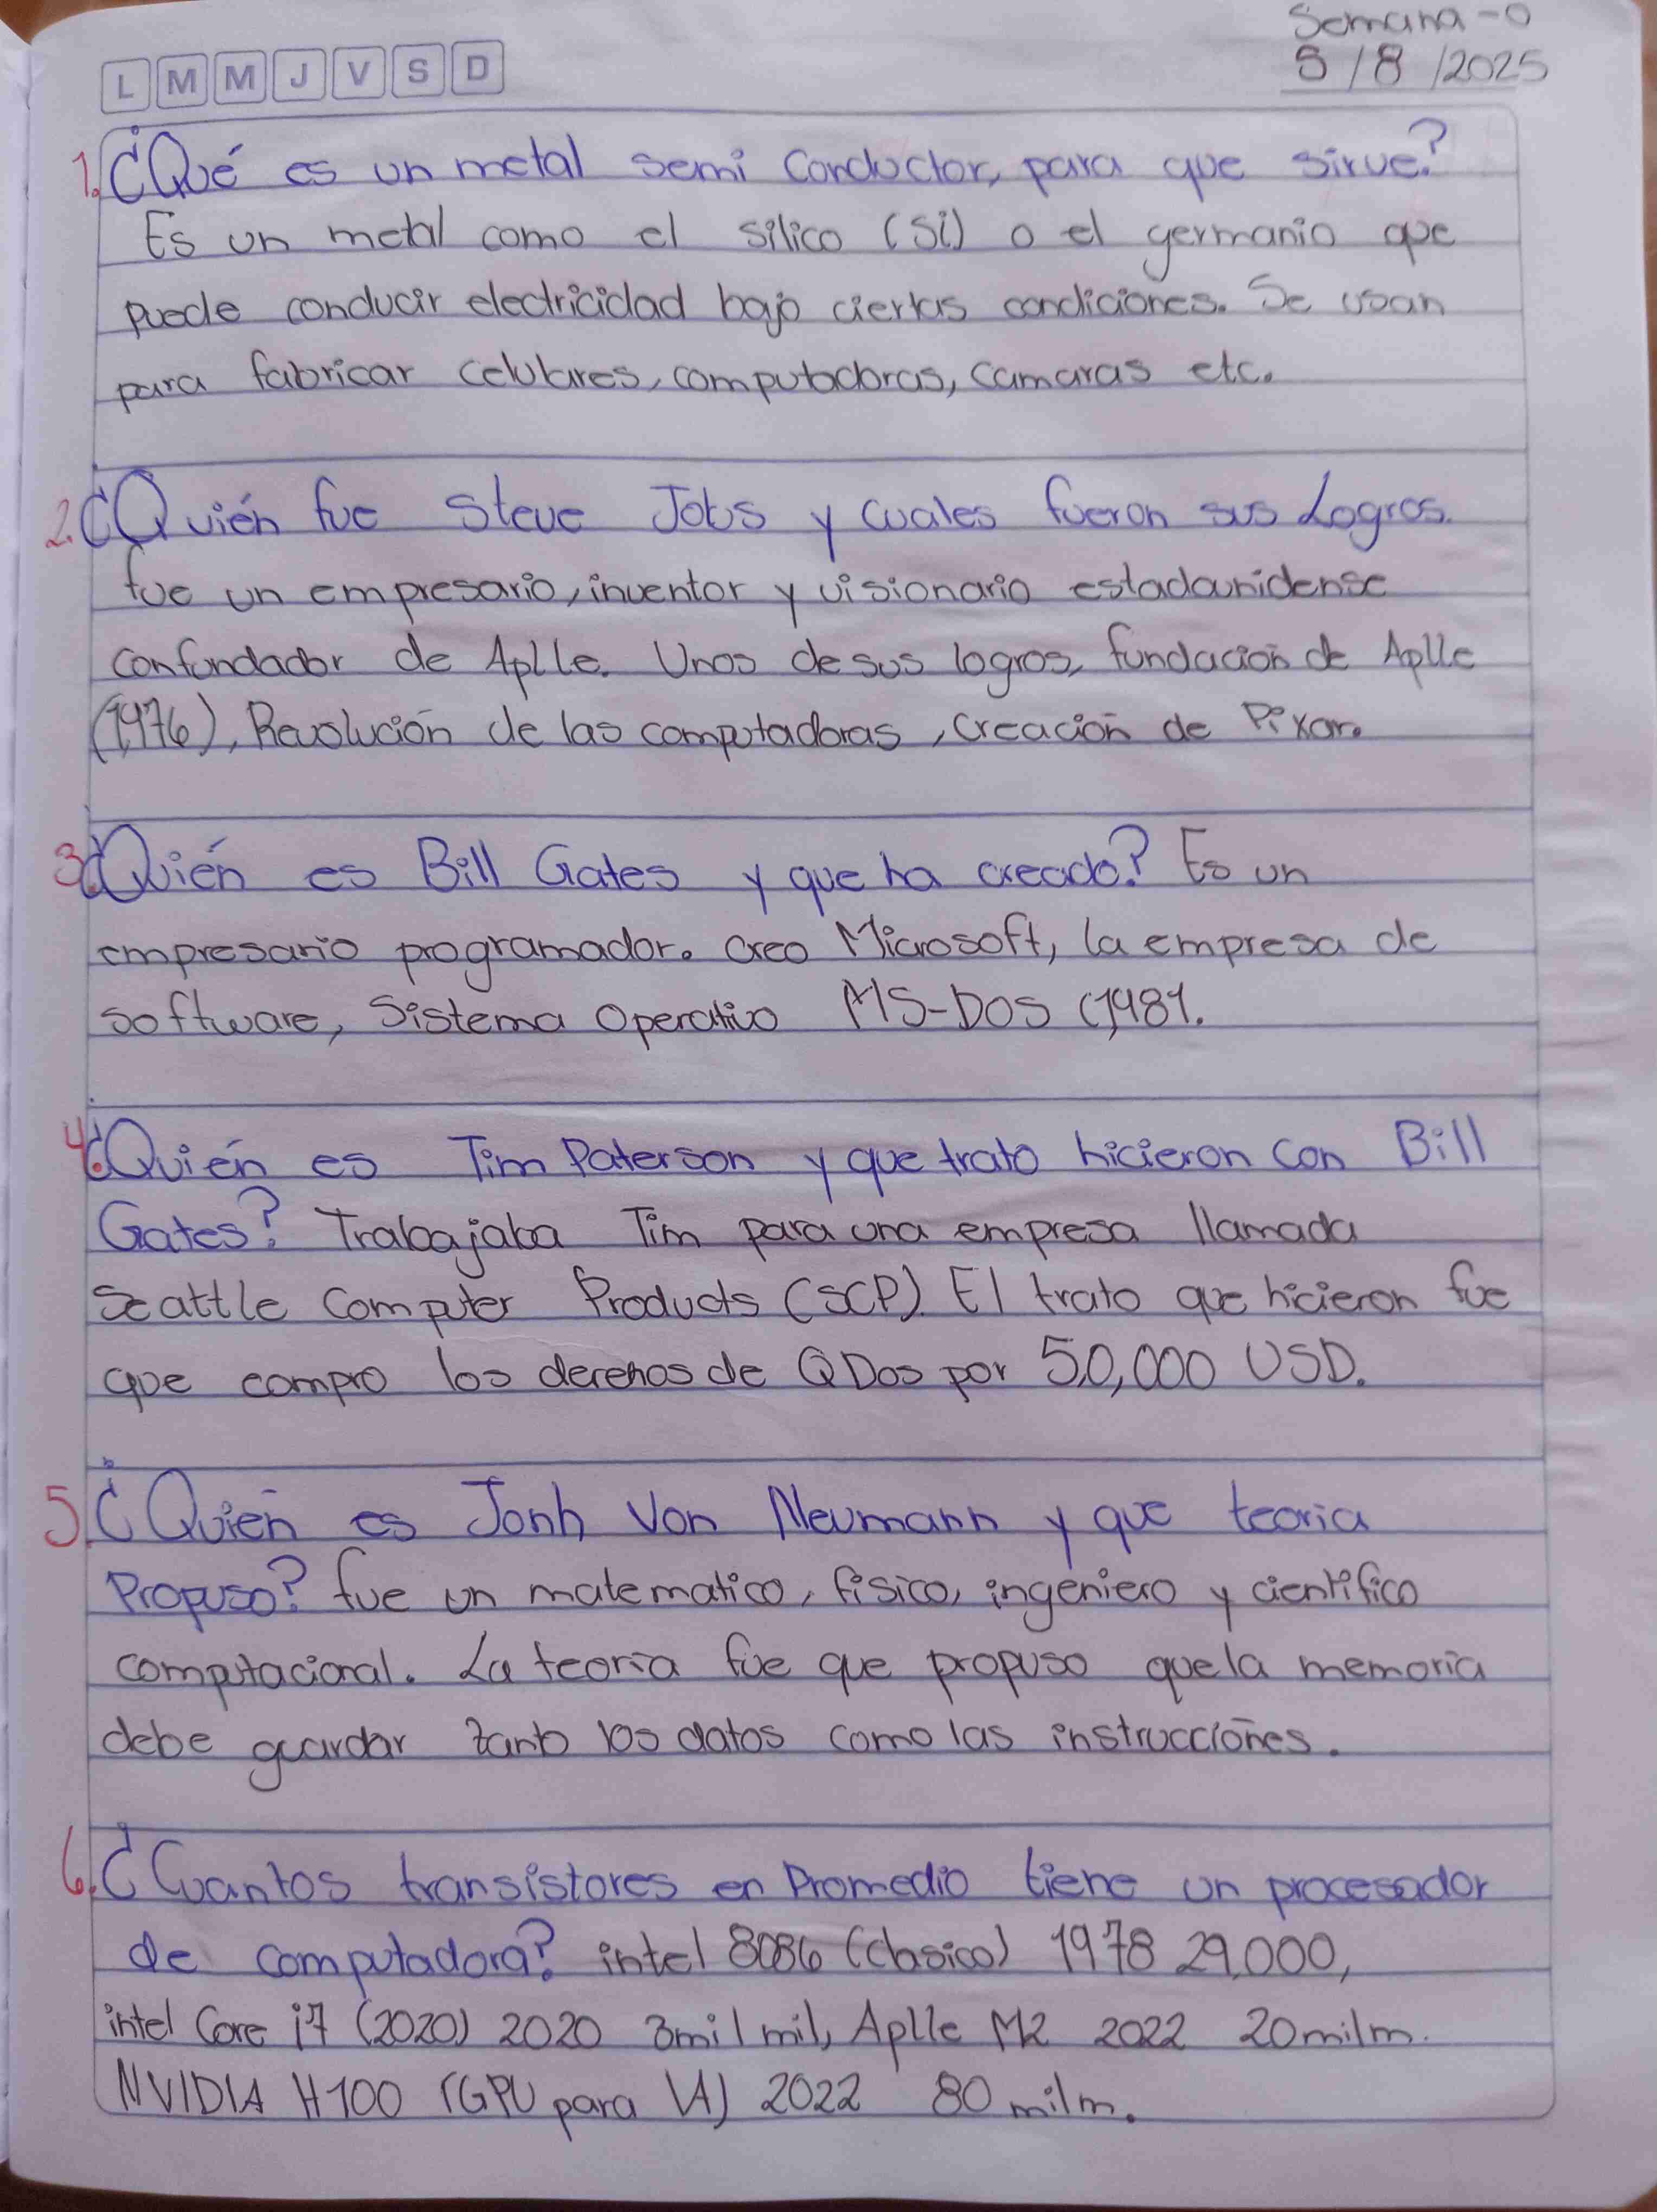 Semana-0
5/8/2025
L M M J V S D
1. ¿Qué es un metal semi conductor, para que sirve?
Es un metal como el silico (Si) o el germanio que
puede conducir electricidad bajo ciertas condiciones. Se usan
para fabricar celulares, computadoras, camaras etc.
2. ¿Quién fue Steve Jobs y cuales fueron sus Logros.
fue un empresario, inventor y visionario estadounidense
confundador de Aplle. Unos de sus logros, fundación de Aplle
(1,976), Revolución de las computadoras, creación de Pixar.
3. ¿Quién es Bill Gates y que ha creado? Es un
empresario programador. creo Microsoft, la empresa de
software, Sistema Operativo MS-DOS (1,981.
4. ¿Quién es Tim Paterson y que trato hicieron con Bill
Gates? Trabajaba Tim para una empresa llamada
Seattle Computer Products (SCP). El trato que hicieron fue
que compro los derehos de QDos por 50,000 USD.
5. ¿Quién es Jonh Von Neumann y que teoria
Propuso? fue un matematico, fisico, ingeniero y cientifico
computacional. La teoria fue que propuso que la memoria
debe guardar tanto los datos como las instrucciones.
6. ¿Cuantos transistores en Promedio tiene un procesador
de computadora? intel 8086 (clasico) 1978 29,000,
intel Core i7 (2020) 2020 3mil mil, Aplle M2 2022 20milm.
NVIDIA H100 (GPU para IA) 2022 80 milm.